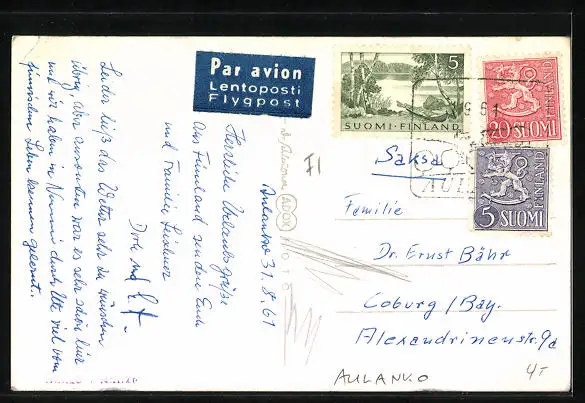 Par avion
Lentoposti
Flygpost
5
SUOMI-FINLAND
20 SUOMI
FINLAND
5 SUOMI
FINLAND
61
AUL
Saksa
Familie
Dr. Ernst Bähr
Coburg/Bay.
Alexandrinenstr. 9a
AULANKO
Aulanko 31.8.61
Herzliche Urlaubsgrüße
aus Finnland senden Euch
und Familie
Dore und
Leider ließ das Wetter sehr zu wünschen
übrig, aber ansonsten war es sehr schön hier
und wir haben in Nurmi durch Ute viel vom
finnischen Leben kennen gelernt.
ADOX
FOTO
FI
4,-